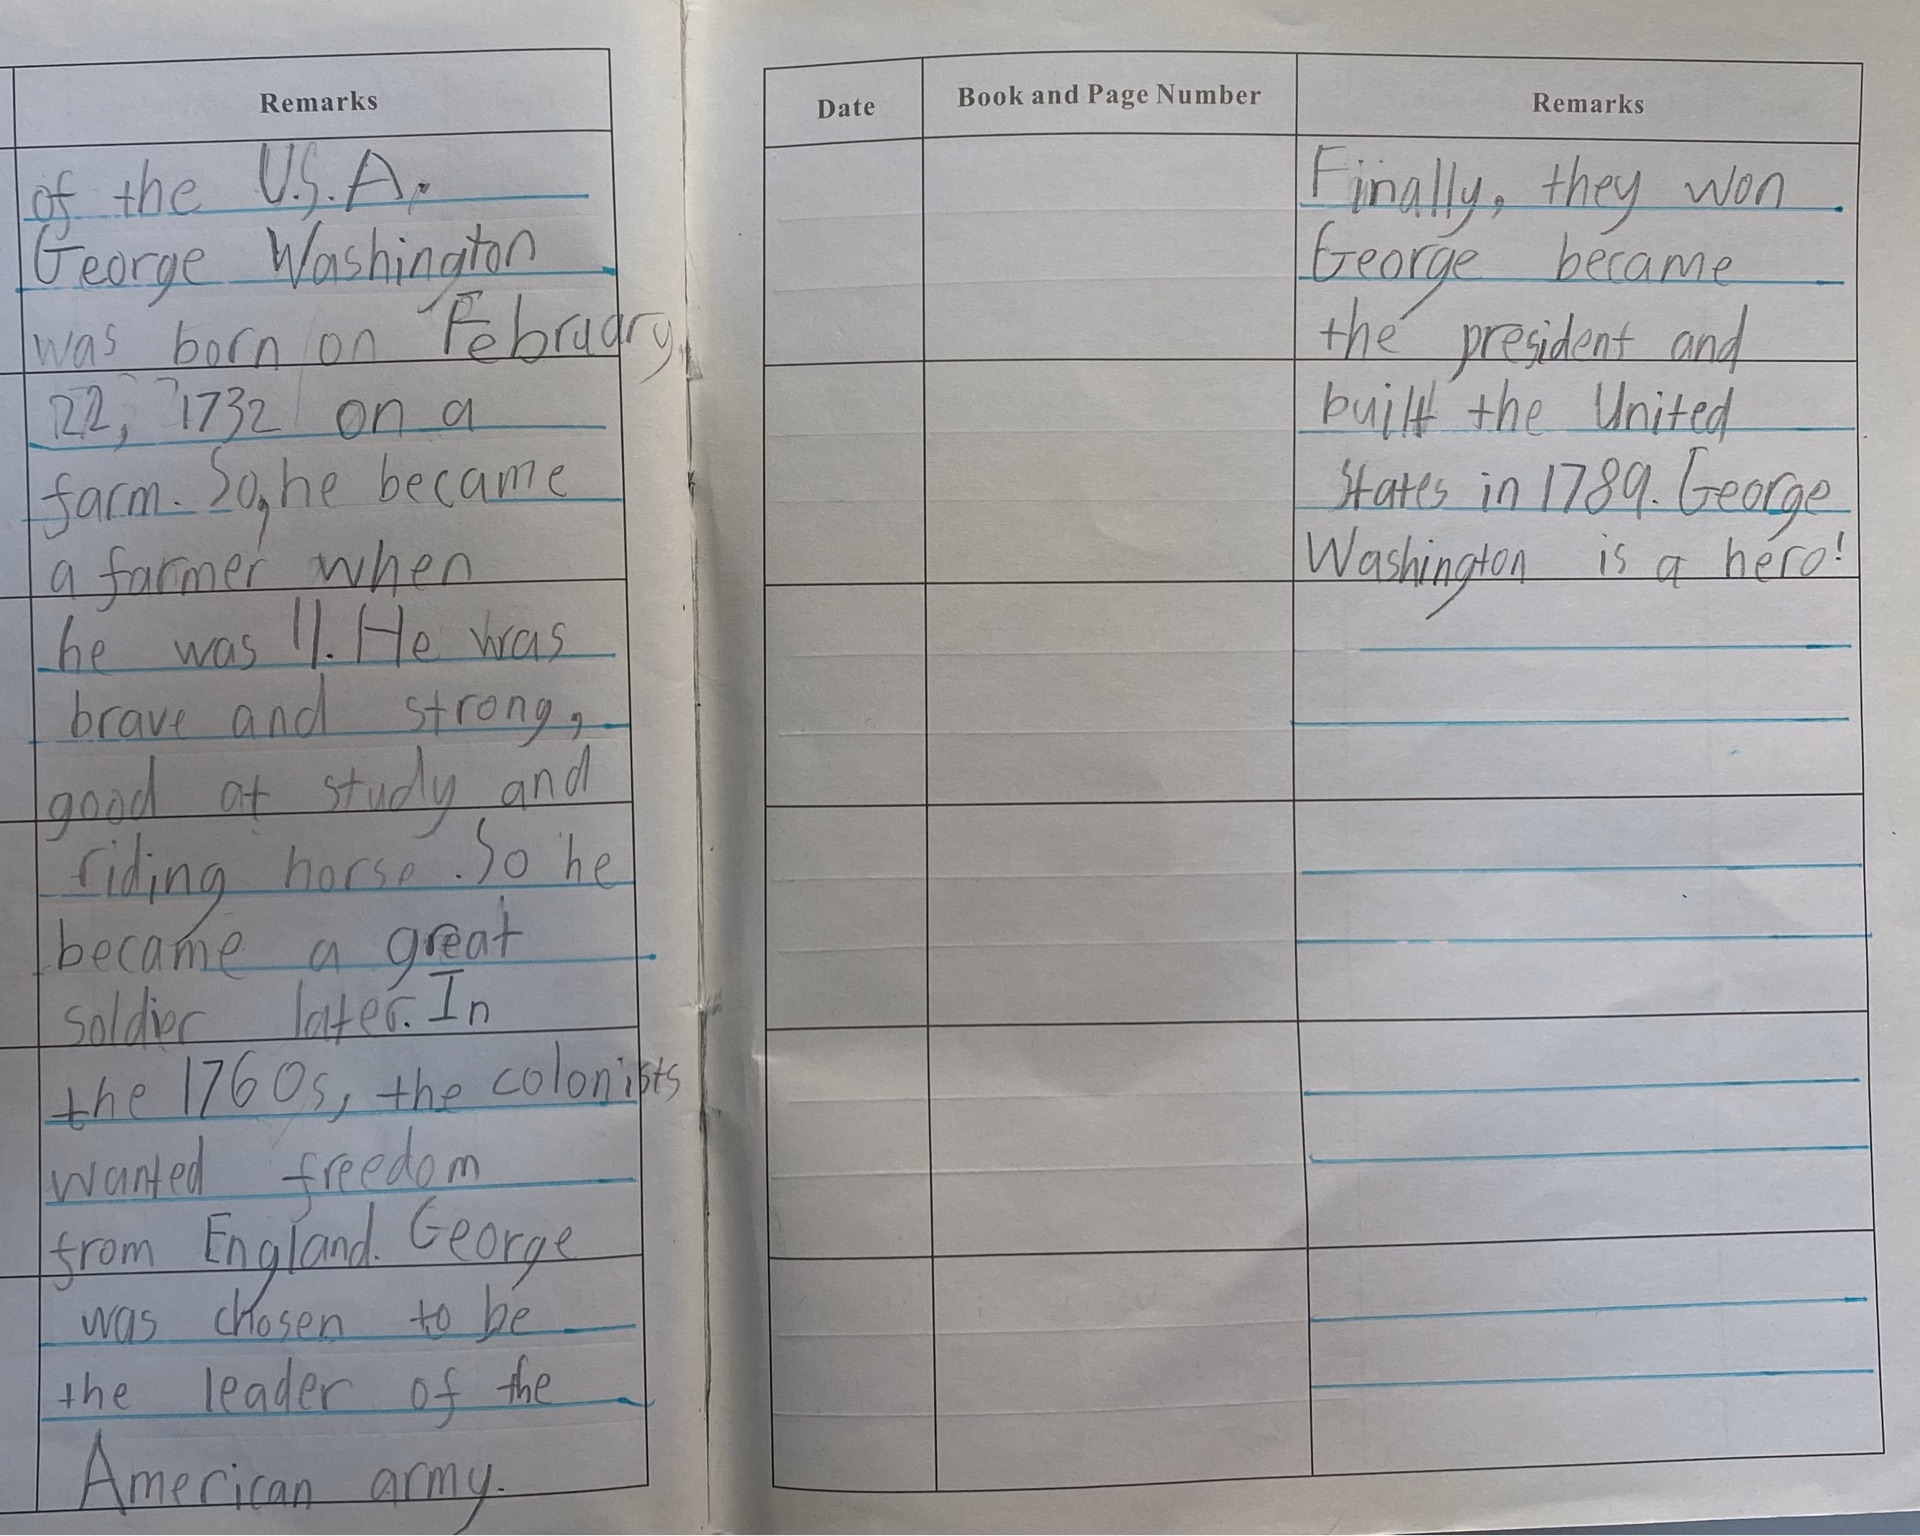 Remarks
of the U.S.A.
George Washington
was born on February
22, 1732 on a
farm. So, he became
a farmer when
he was 11. He was
brave and strong,
good at study and
riding horse. So he
became a great
soldier later. In
the 1760s, the colonists
wanted freedom
from England. George
was chosen to be
the leader of the
American army.
Date Book and Page Number Remarks
Finally, they won.
George became
the president and
built the United
States in 1789. George
Washington is a hero!